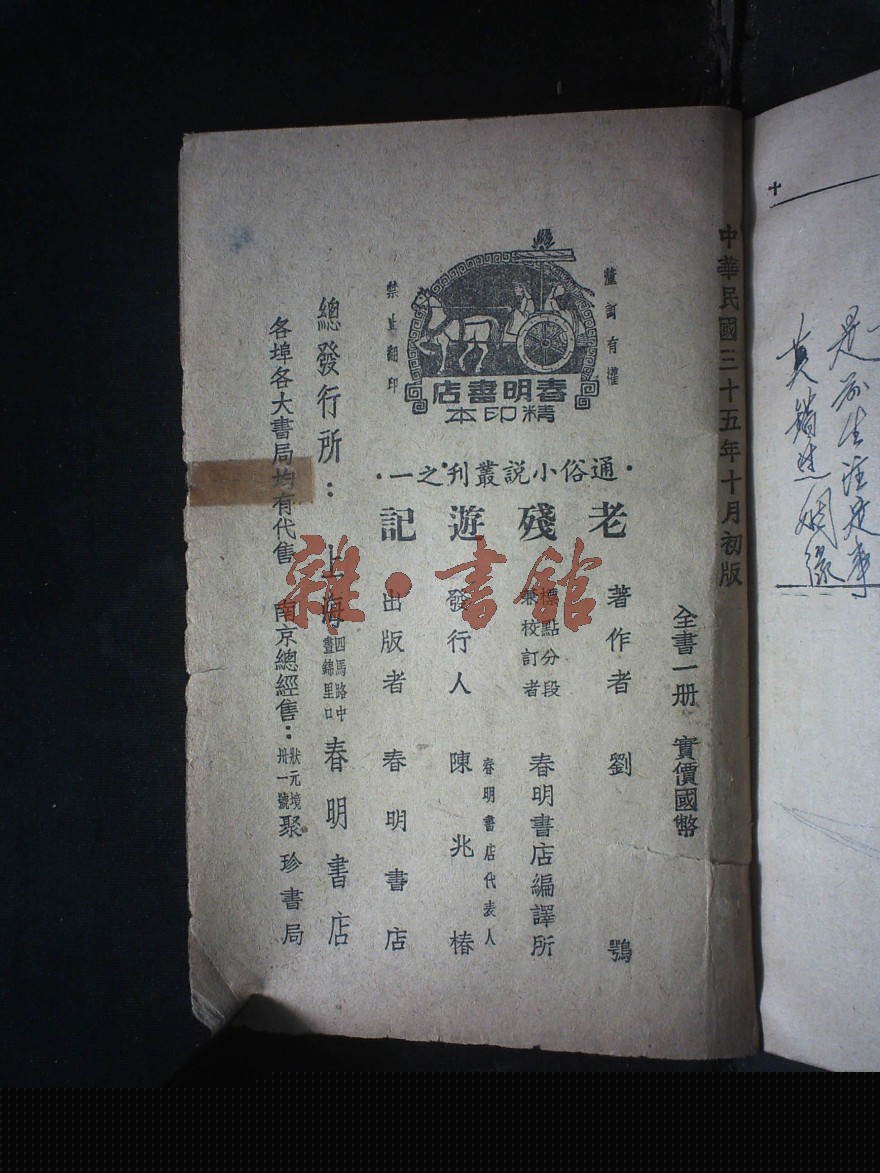 中華民國三十五年十月初版
全書一册 實價國幣
有權
禁止翻印
春明書店
精印本
·通俗小說叢刊之一·
老殘遊記
著作者 劉鶚
標點分段
兼校訂者
春明書店編譯所
發行人
春明書店代表人
陳兆椿
出版者 春明書店
總發行所：上海
四馬路中
晝錦里口
春明書店
各埠各大書局均有代售 南京總經售：
狀元境
卅一號
聚珍書局
雜·書館
十
是前生註定事
莫錯過姻緣